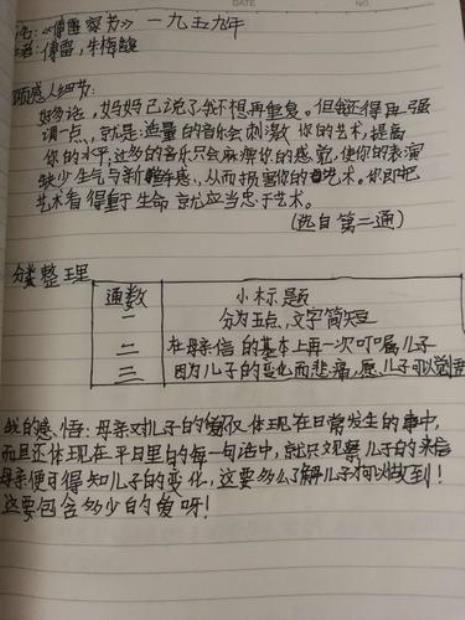 名:《傅雷家书》 一九五九年
者:傅雷,朱梅馥
感人细节:
好多话,妈妈已说了我不想再重复。但我还得再强
调一点,就是:适量的音乐会刺激你的艺术,提高
你的水平;过多的音乐只会麻痹你的感觉,使你的表演
缺少生气与新鲜感,从而损害你的艺术。你即把
艺术看得重于生命就应当忠于艺术。
(选自第二通)
分类整理
通数 小标题
一 分为五点,文字简短
二 在母亲信的基本上再一次叮嘱儿子
三 因为儿子的变化而悲痛,愿儿子可以觉悟
我的感悟:母亲对儿子的爱不仅体现在日常发生的事中,
而且还体现在平日里的每一句话中,就只观察儿子的来信
母亲便可得知儿子的变化,这要多么了解儿子才可以做到!
这要包含多少的爱呀!